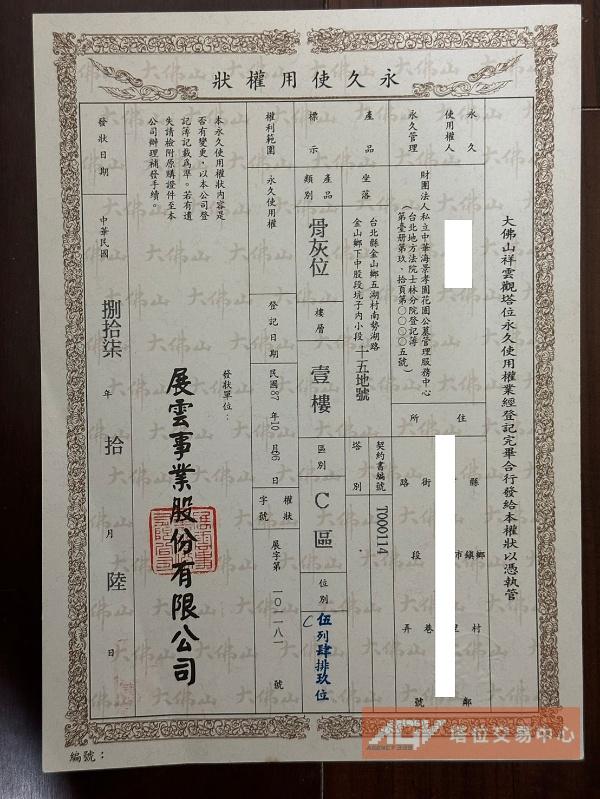 永久使用權狀
大佛山祥雲觀塔位永久使用權業經登記完畢合行發給本權狀以憑執管
永久使用權人
住所
縣 鄉鎮市 村里 鄰
路街 段 巷弄 號
永久管理
財團法人私立中華海景孝園花園公墓管理服務中心
(台北地方法院士林分院登記簿
第壹册第玖、拾頁第〇〇〇〇五號)
產品標示
坐落
台北縣金山鄉五湖村南勢湖路
金山鄉下中股段坑子內小段 十五地號
契約書編號
T000114
產品類別
骨灰位
樓層
壹樓
塔別
區別
C區
位別
C伍列肆排玖位
權利範圍
永久使用權
登記日期
民國87年10月06日
權狀字號
展字第一〇一八一號
本永久使用權狀內容是
否有變更,以本公司登
記簿記載爲準。若有遺
失請檢附原購證件至本
公司辦理補發手續。
發狀單位:
展雲事業股份有限公司
發狀日期
中華民國捌拾柒年拾月陸日
編號:
AGV 塔位交易中心